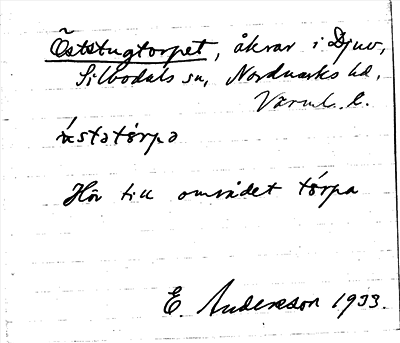 Öststugtorpet, åkrar i Djuv,
Silbodals sn, Nordmarks hd,
Värml. l.
Hör till området tórpa
E. Andersson 1933.